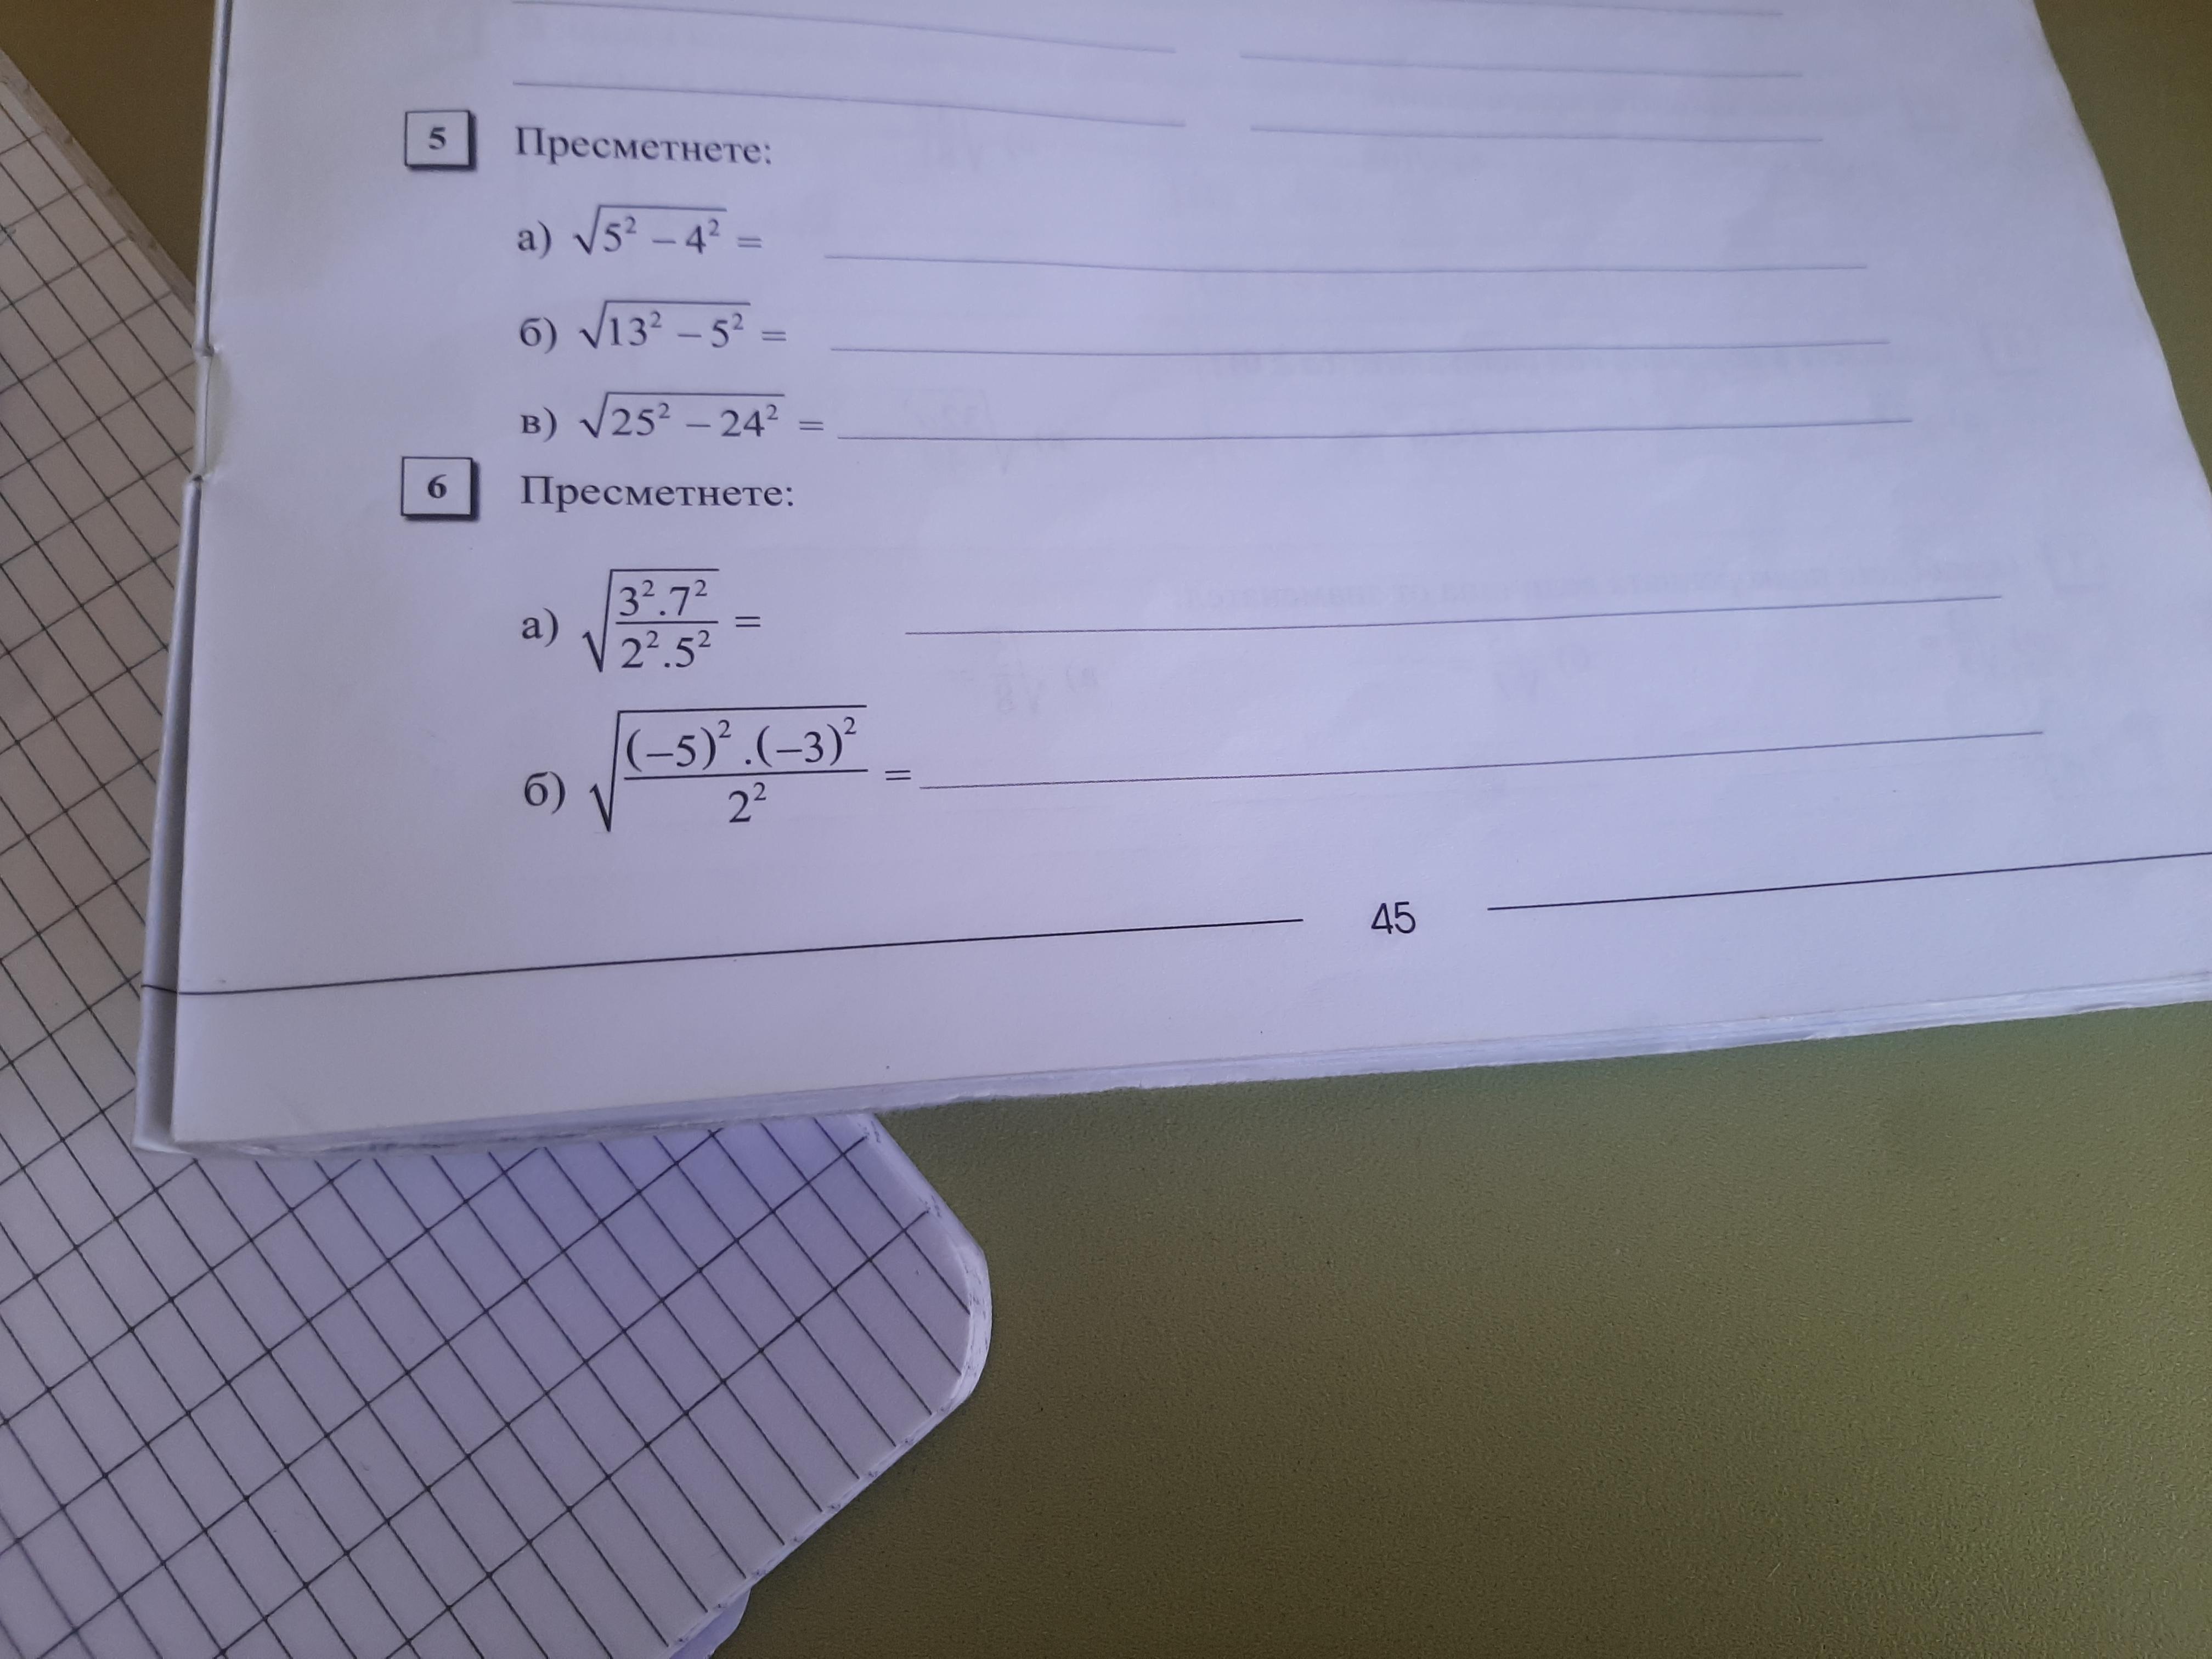 5 Пресметнете:
а) √(5² – 4²) =
б) √(13² – 5²) =
в) √(25² – 24²) =
6 Пресметнете:
а) √((3².7²)/(2².5²)) =
б) √(((–5)².(–3)²)/(2²)) =
45